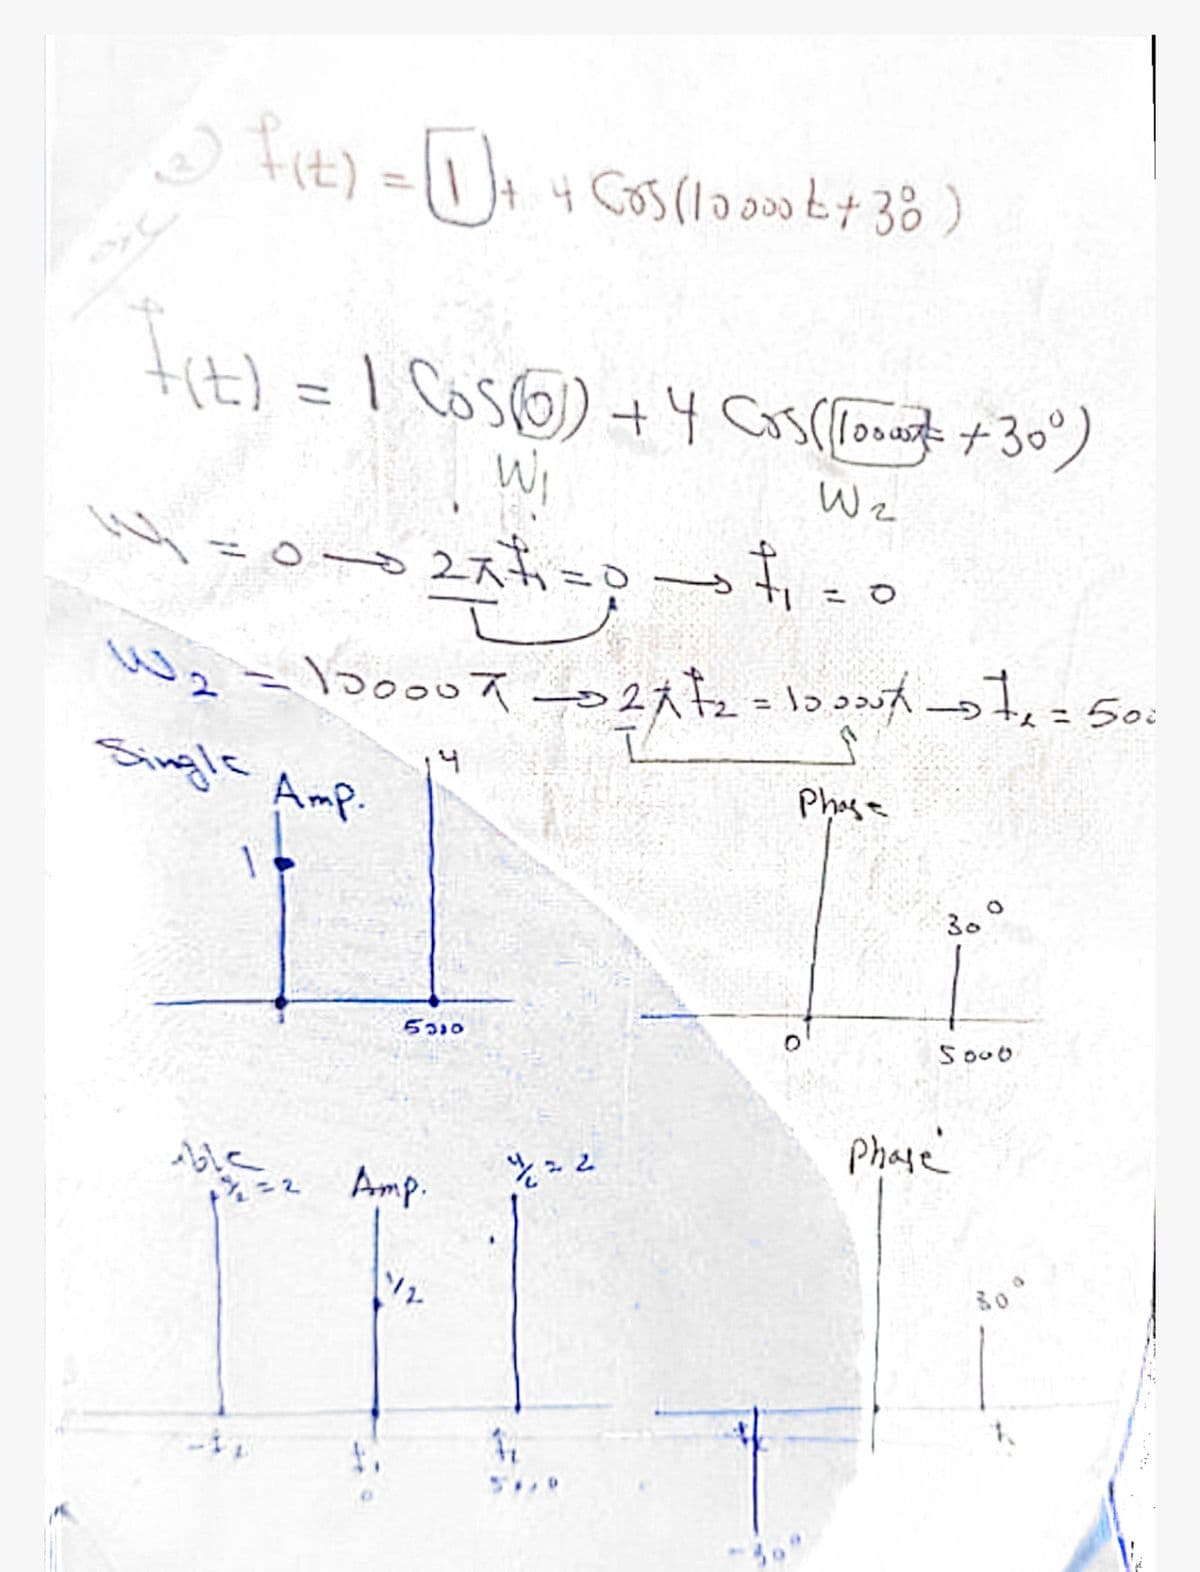 2) f(t) = 1 + 4 Cos(10000t + 30°)
f(t) = 1 Cos(0) + 4 Cos(10000π + 30°)
W1 W2
W1 = 0 → 2πf1 = 0 → f1 = 0
W2 = 10000π → 2πf2 = 10000π → f2 = 500
Single
Amp.
4
1
5000
Phase
30°
0
5000
Amp.
4/2 = 2
4/2 = 2
1/2
-f2
f1
0
f2
5000
Phase
30°
f2
-30°